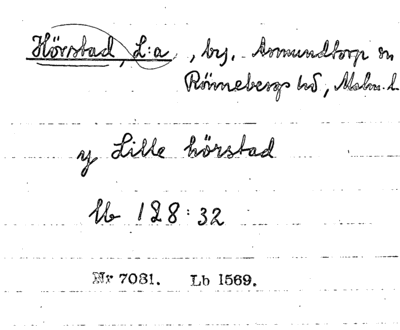 Hörstad, L:a, by. Asmundtorp sn
Rönnebergs hd, Malm. l.
y Lille hörstad
lb 128:32
Nr 7031. Lb 1569.